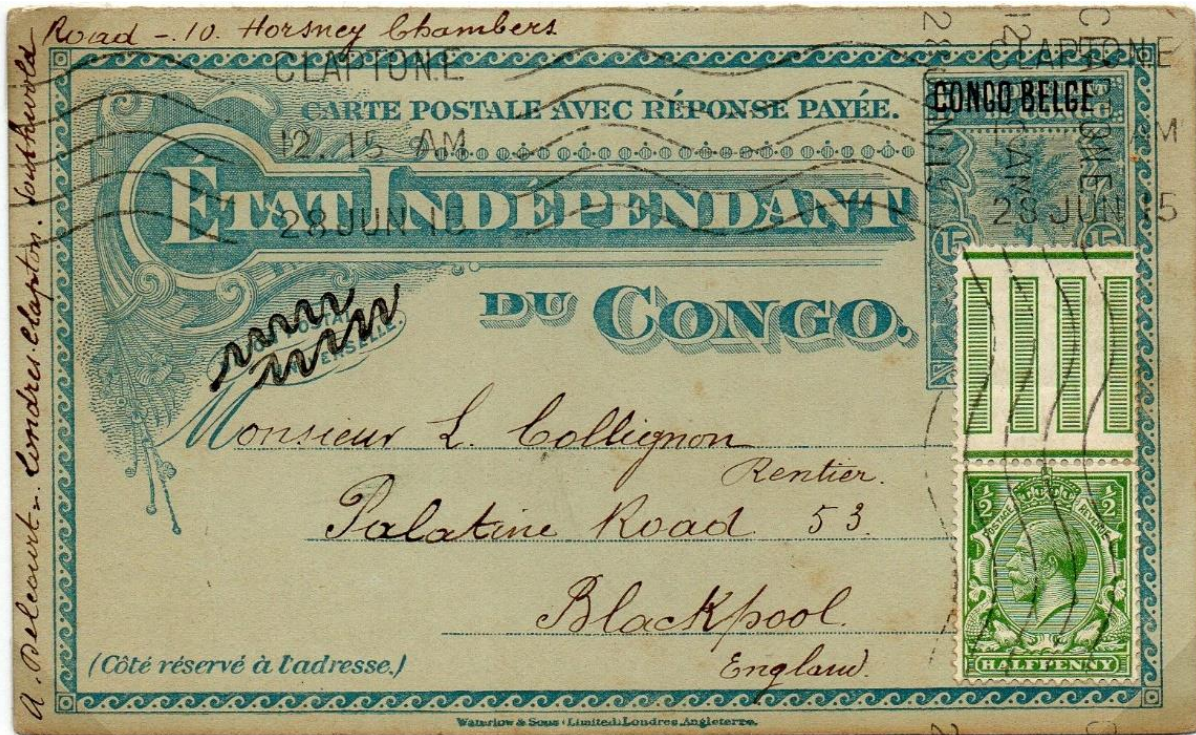 Road - 10. Horsney Chambers
A. Delcourt - Londres. Clapton. Southwold
CLAPTON.E
12. 15 AM
28 JUN 15
CLAPTON.E
AM
28 JUN 15
CARTE POSTALE AVEC RÉPONSE PAYÉE.
CONGO BELGE
ÉTAT INDÉPENDANT
DU CONGO.
15 15
Monsieur L. Collignon
Rentier.
Palatine Road 53.
Blackpool.
England.
(Côté réservé à l'adresse.)
½ ½
POSTAGE REVENUE
HALFPENNY
Waterlow & Sons Limited, Londres, Angleterre.